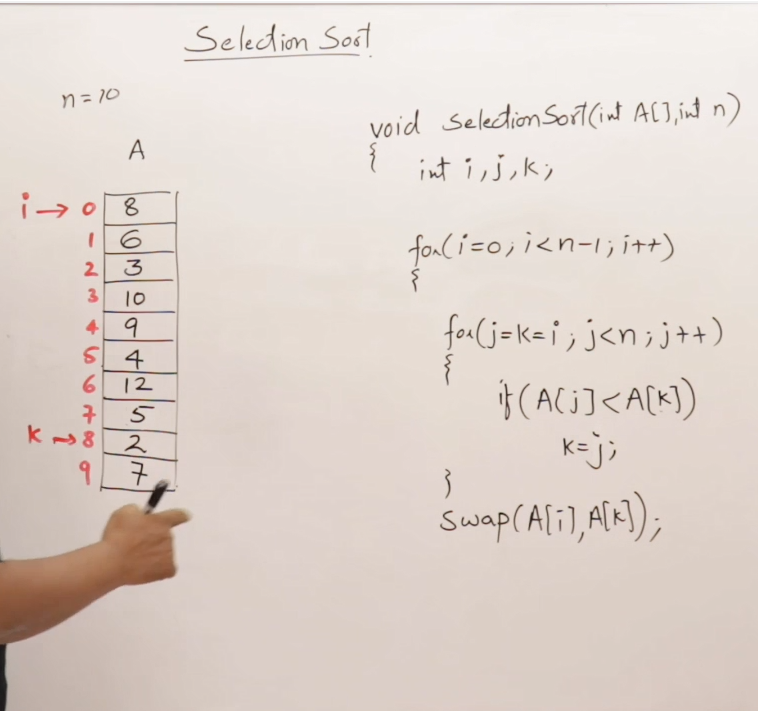 Selection Sort
n=10
A
i → 0 8
1 6
2 3
3 10
4 9
5 4
6 12
7 5
k → 8 2
9 7
void SelectionSort(int A[],int n)
{
int i,j,k;
for(i=0;i<n-1;i++)
{
for(j=k=i;j<n;j++)
{
if(A[j]<A[k])
k=j;
}
swap(A[i],A[k]);